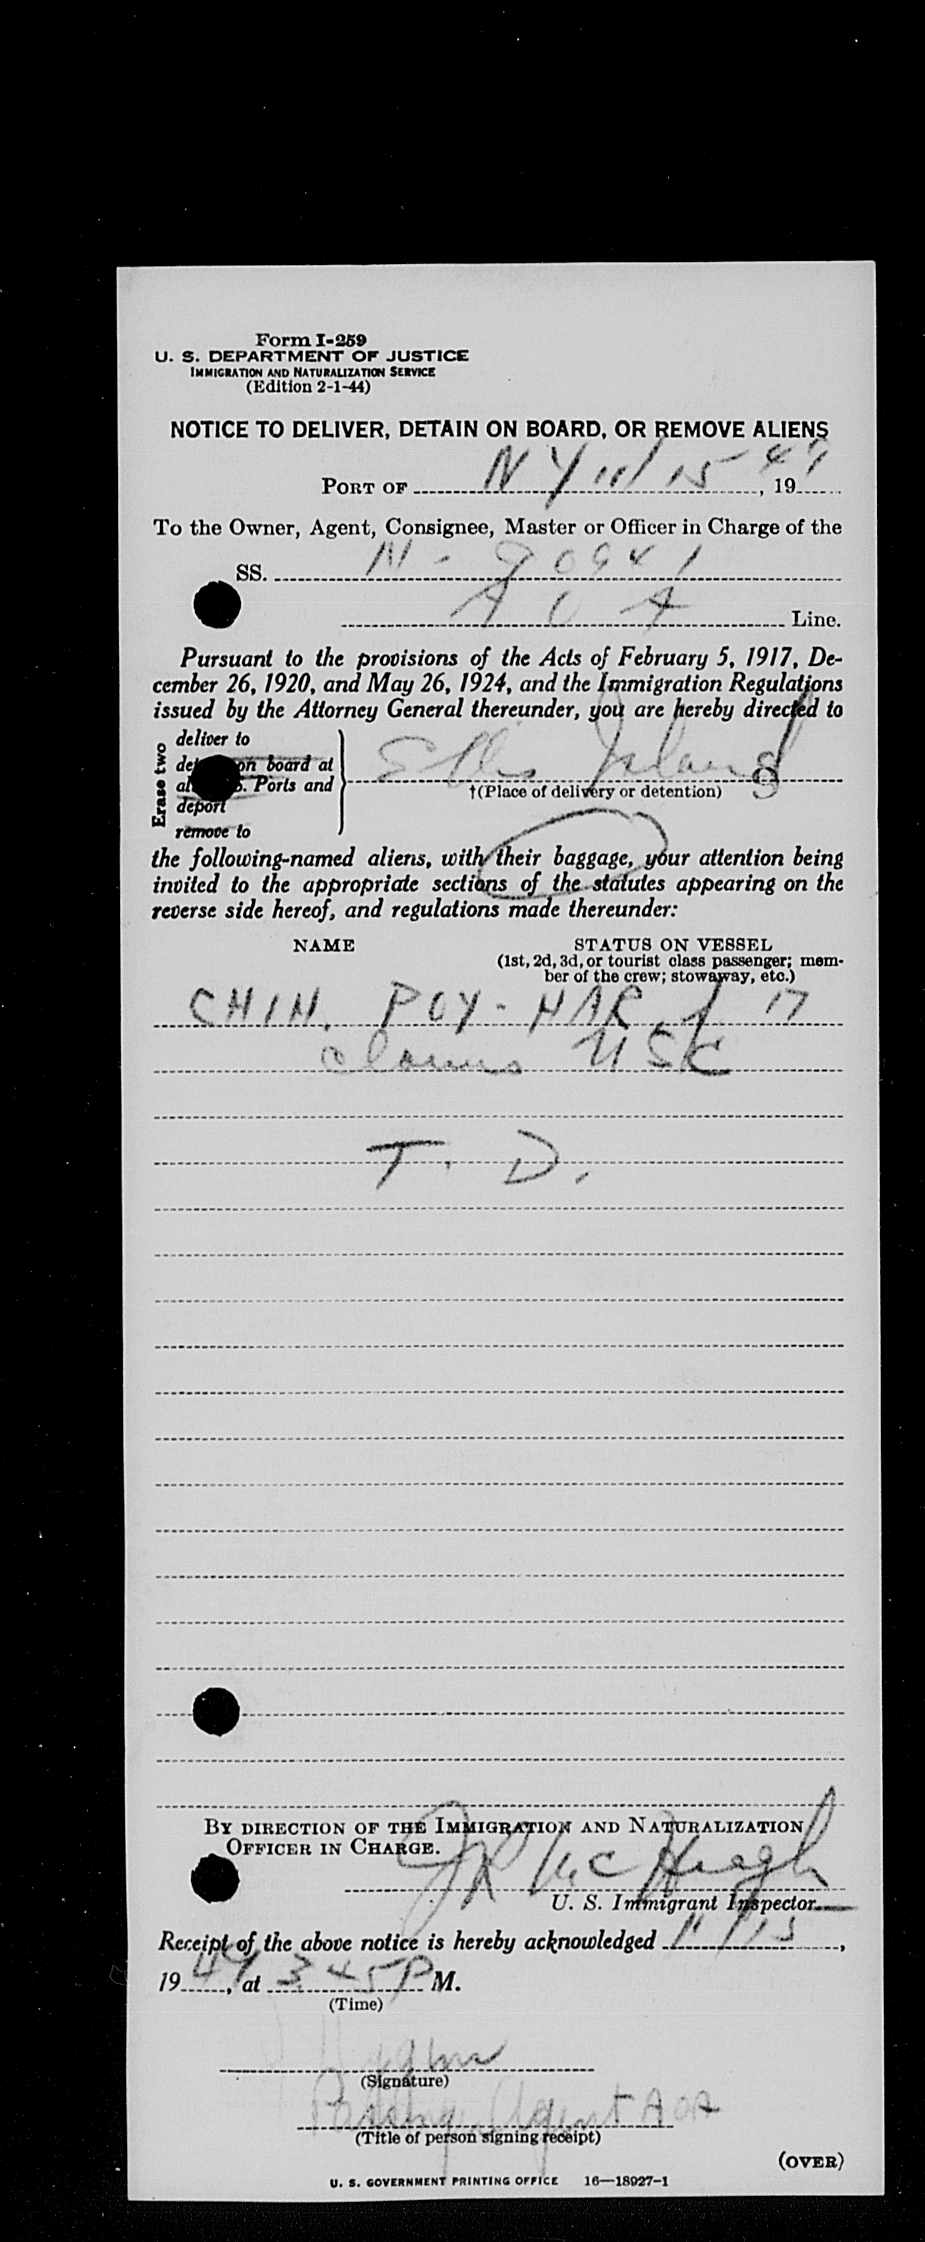 Form I-259
U. S. DEPARTMENT OF JUSTICE
IMMIGRATION AND NATURALIZATION SERVICE
(Edition 2-1-44)
NOTICE TO DELIVER, DETAIN ON BOARD, OR REMOVE ALIENS
PORT OF NY 11/15, 1947
To the Owner, Agent, Consignee, Master or Officer in Charge of the
SS. N-90941
A O A Line.
Pursuant to the provisions of the Acts of February 5, 1917, De-
cember 26, 1920, and May 26, 1924, and the Immigration Regulations
issued by the Attorney General thereunder, you are hereby directed to
Erase two
deliver to
on board at
Ports and
deport
remove to
Ellis Island
†(Place of delivery or detention)
the following-named aliens, with their baggage, your attention being
invited to the appropriate sections of the statutes appearing on the
reverse side hereof, and regulations made thereunder:
NAME STATUS ON VESSEL
(1st, 2d, 3d, or tourist class passenger; mem-
ber of the crew; stowaway, etc.)
CHIN, POY-HAR f 17
claims USC
T. D.
BY DIRECTION OF THE IMMIGRATION AND NATURALIZATION
OFFICER IN CHARGE.
McHugh
U. S. Immigrant Inspector.
Receipt of the above notice is hereby acknowledged 11/15,
1947, at 345 P M.
(Time)
(Signature)
Passing Agent AOA
(Title of person signing receipt)
(OVER)
U. S. GOVERNMENT PRINTING OFFICE 16—18927-1